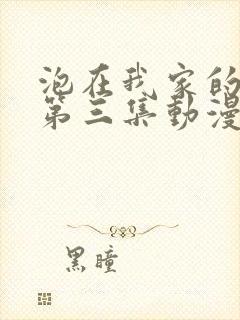 泡在我家的
第三集動漫
黑瞳